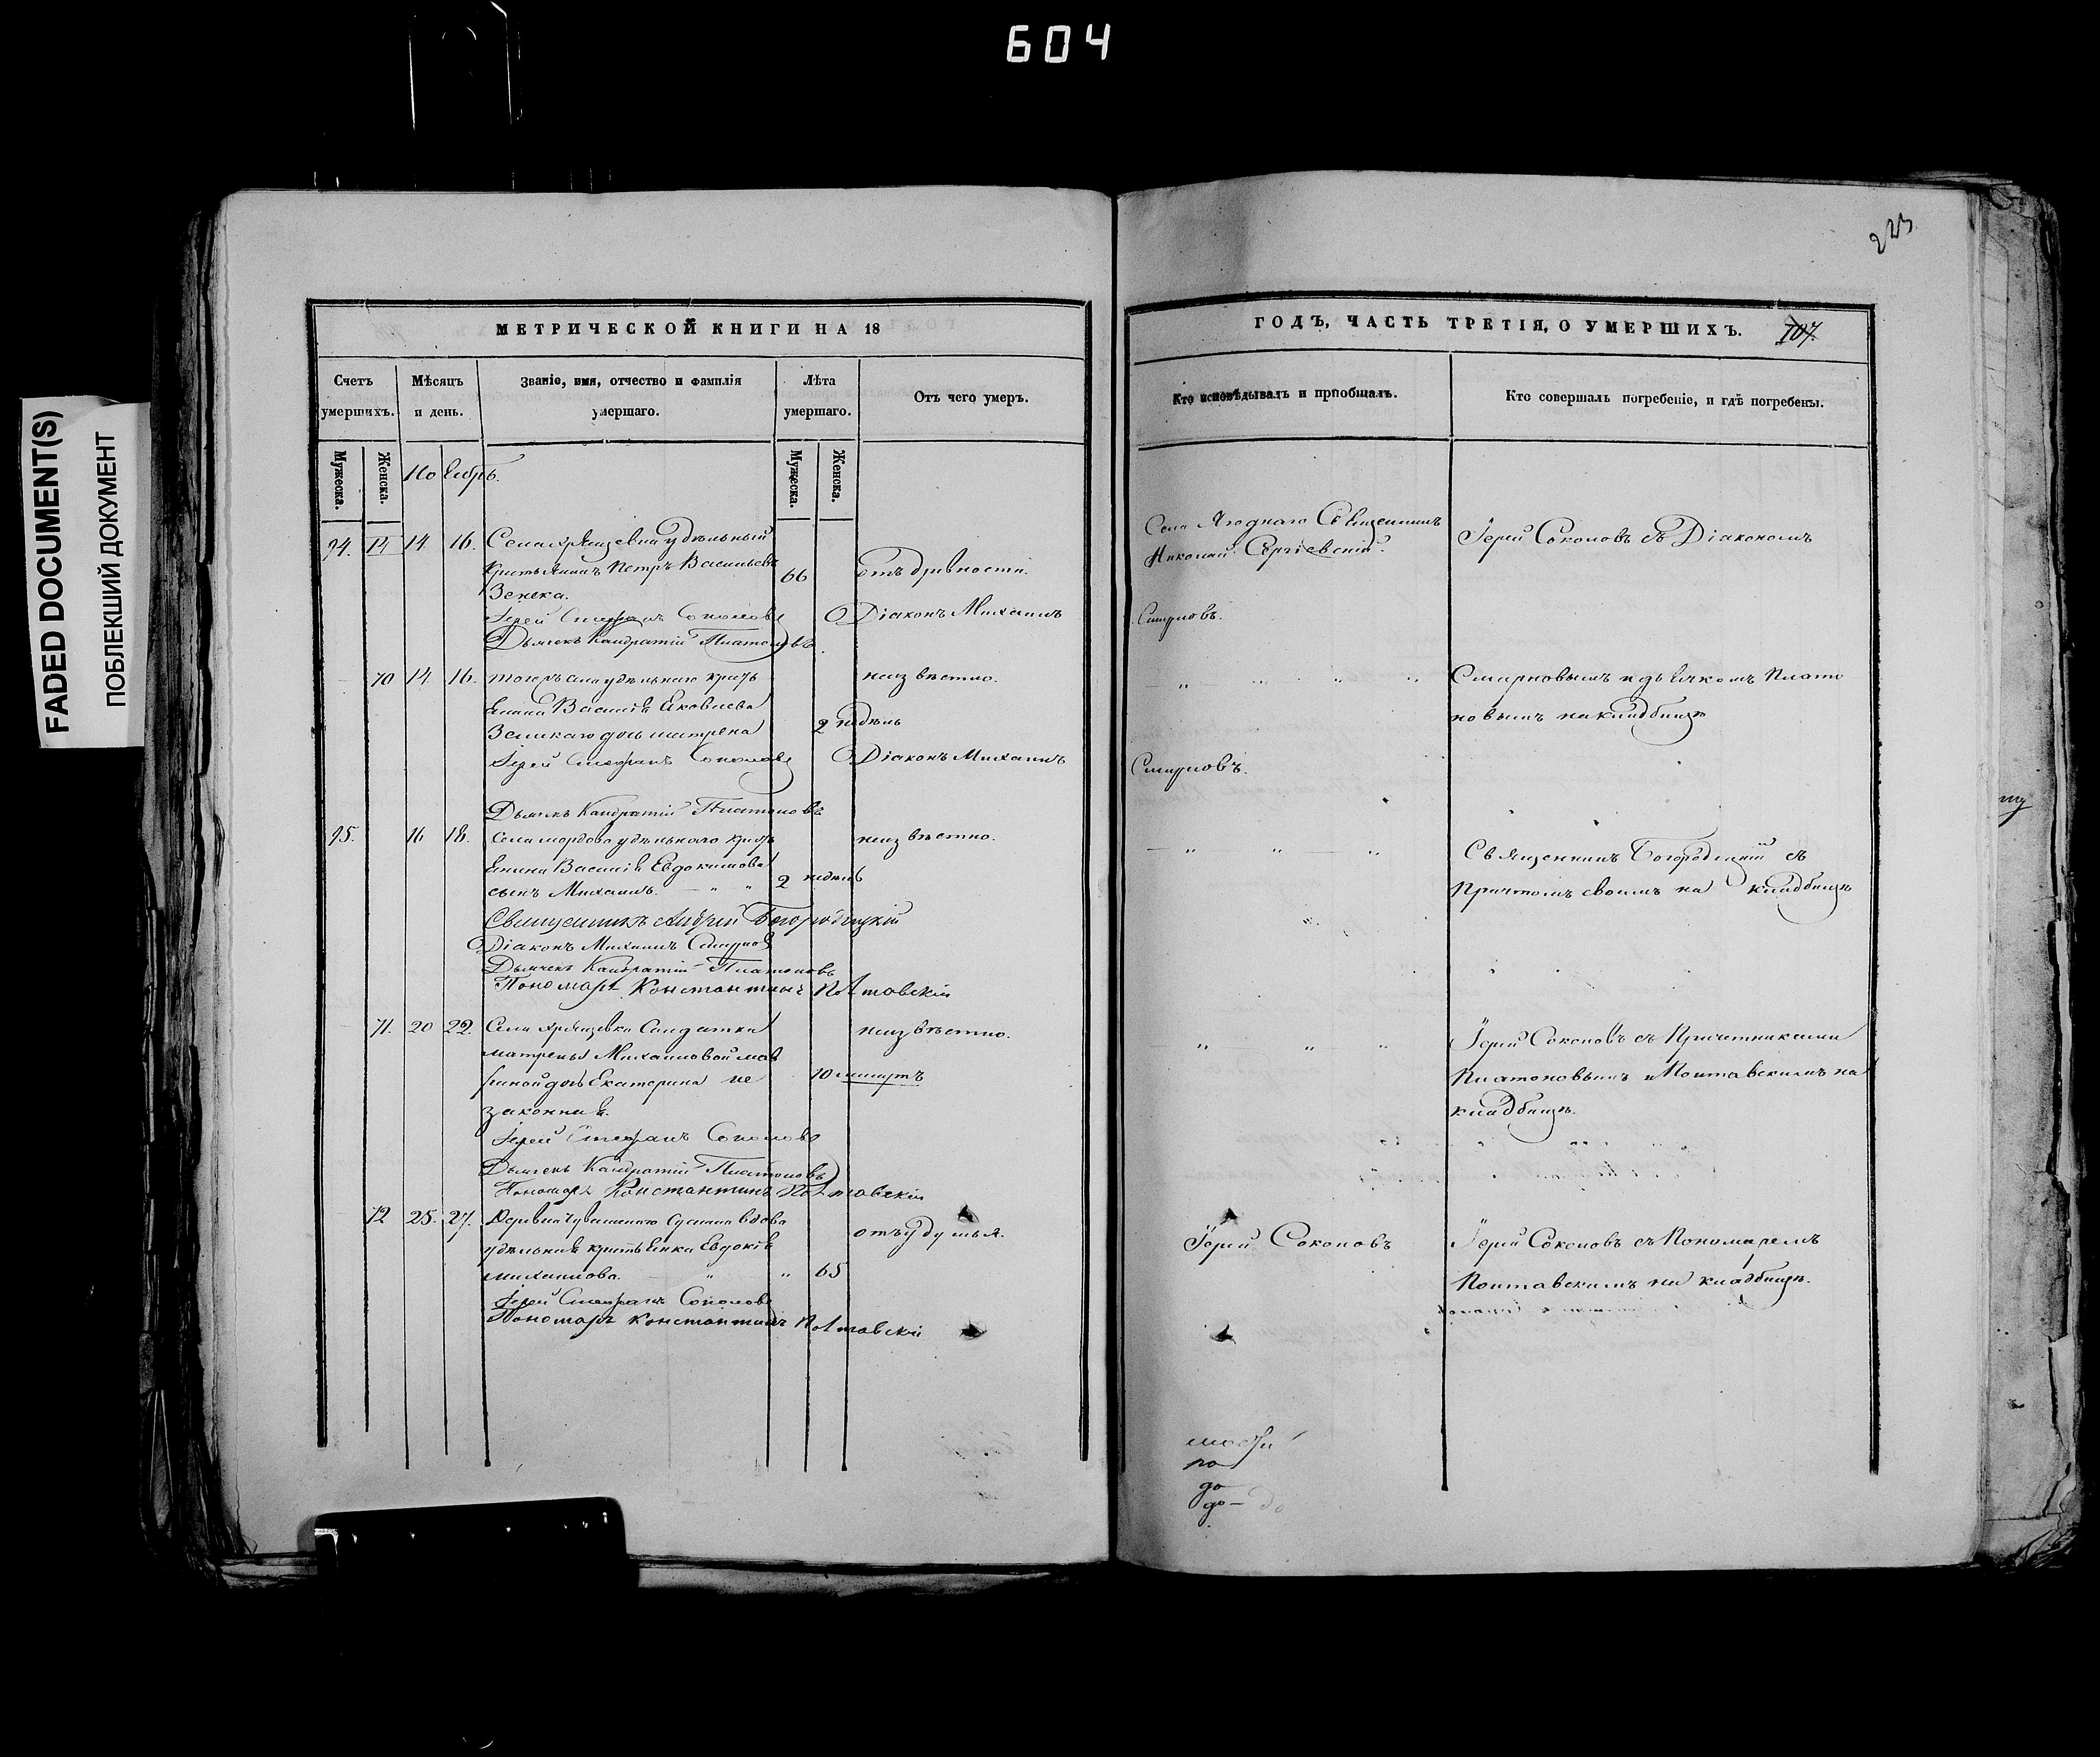 604
FADED DOCUMENT(S)
ПОБЛЕКШИЙ ДОКУМЕНТ
МЕТРИЧЕСКОЙ КНИГИ НА 18
Счетъ умершихъ.
Мѣсяцъ и день.
Званіе, имя, отчество и фамилія умершаго.
Лѣта умершаго.
Отъ чего умеръ.
Мужеска.
Женска.
Ноябрь.
Мужеска.
Женска.
14 16. Села удѣльный
крестьянинъ Петръ Васильевъ 66 отъ древности.
Іерей Стефанъ Соколовъ Діаконъ Михаилъ
Дьячекъ Кандратій Платоновъ.
70 14 16. тогожъ села удѣльнаго кресть неизвѣстно.
янина Василія Яковлева 2 недѣль
дочь матрена
Іерей Стефанъ Соколовъ Діаконъ Михаилъ
Дьячекъ Кандратій Платоновъ
16 18. Села мордово удѣльнаго кресть неизвѣстно.
янина Василія Евдокимова
сынъ Михаилъ. " " 2 недѣль
Священникъ Андрей Богородицкій
Діаконъ Михаилъ Смирновъ
Дьячекъ Кандратій Платоновъ
Пономарь Константинъ Полтавскій
71. 20 22. Села Солдатки неизвѣстно.
матрены Михаиловой
дочь Екатерина не 10 минутъ
законная.
Іерей Стефанъ Соколовъ
Дьячекъ Кандратій Платоновъ
Пономарь Константинъ Полтавскій
72 25. 27. Деревни вдова отъ удушья.
удѣльная крестьянка Евдокія
михаилова. " " 65
Іерей Стефанъ Соколовъ
Пономарь Константинъ Полтавскій
223
ГОДЪ, ЧАСТЬ ТРЕТІЯ, О УМЕРШИХЪ. 107.
Кто исповѣдывалъ и пріобщалъ.
Кто совершалъ погребеніе, и гдѣ погребены.
Села Ягоднаго Священникъ Іерей Соколовъ съ Діакономъ
Николай Сергіевскій.
Смирновъ.
" " " " Смирновымъ и дьячкомъ Плато
новымъ на кладбищѣ
Смирновъ.
" " " Священникъ Богородицкій съ
Причтомъ своимъ на кладбищѣ
" " " Іерей Соколовъ съ Причетниками
Платоновымъ и Полтавскимъ на
кладбищѣ.
Іерей Соколовъ Іерей Соколовъ съ Пономаремъ
Полтавскимъ на кладбищѣ.
но
до
до –